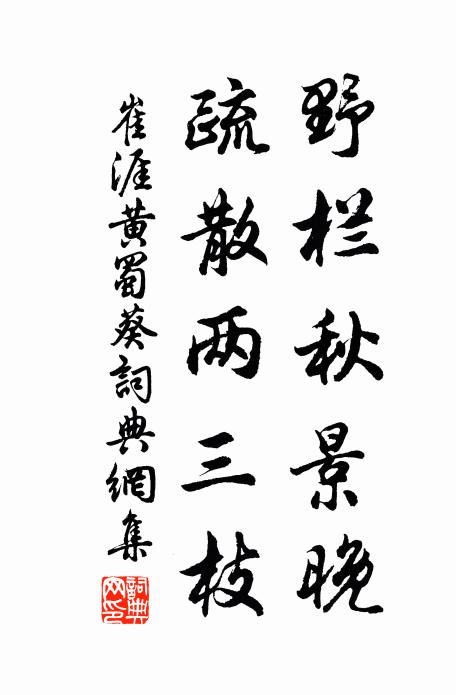 野栏秋景晚
疏散两三枝
崔涯黄蜀葵詞典網集
詞典网印